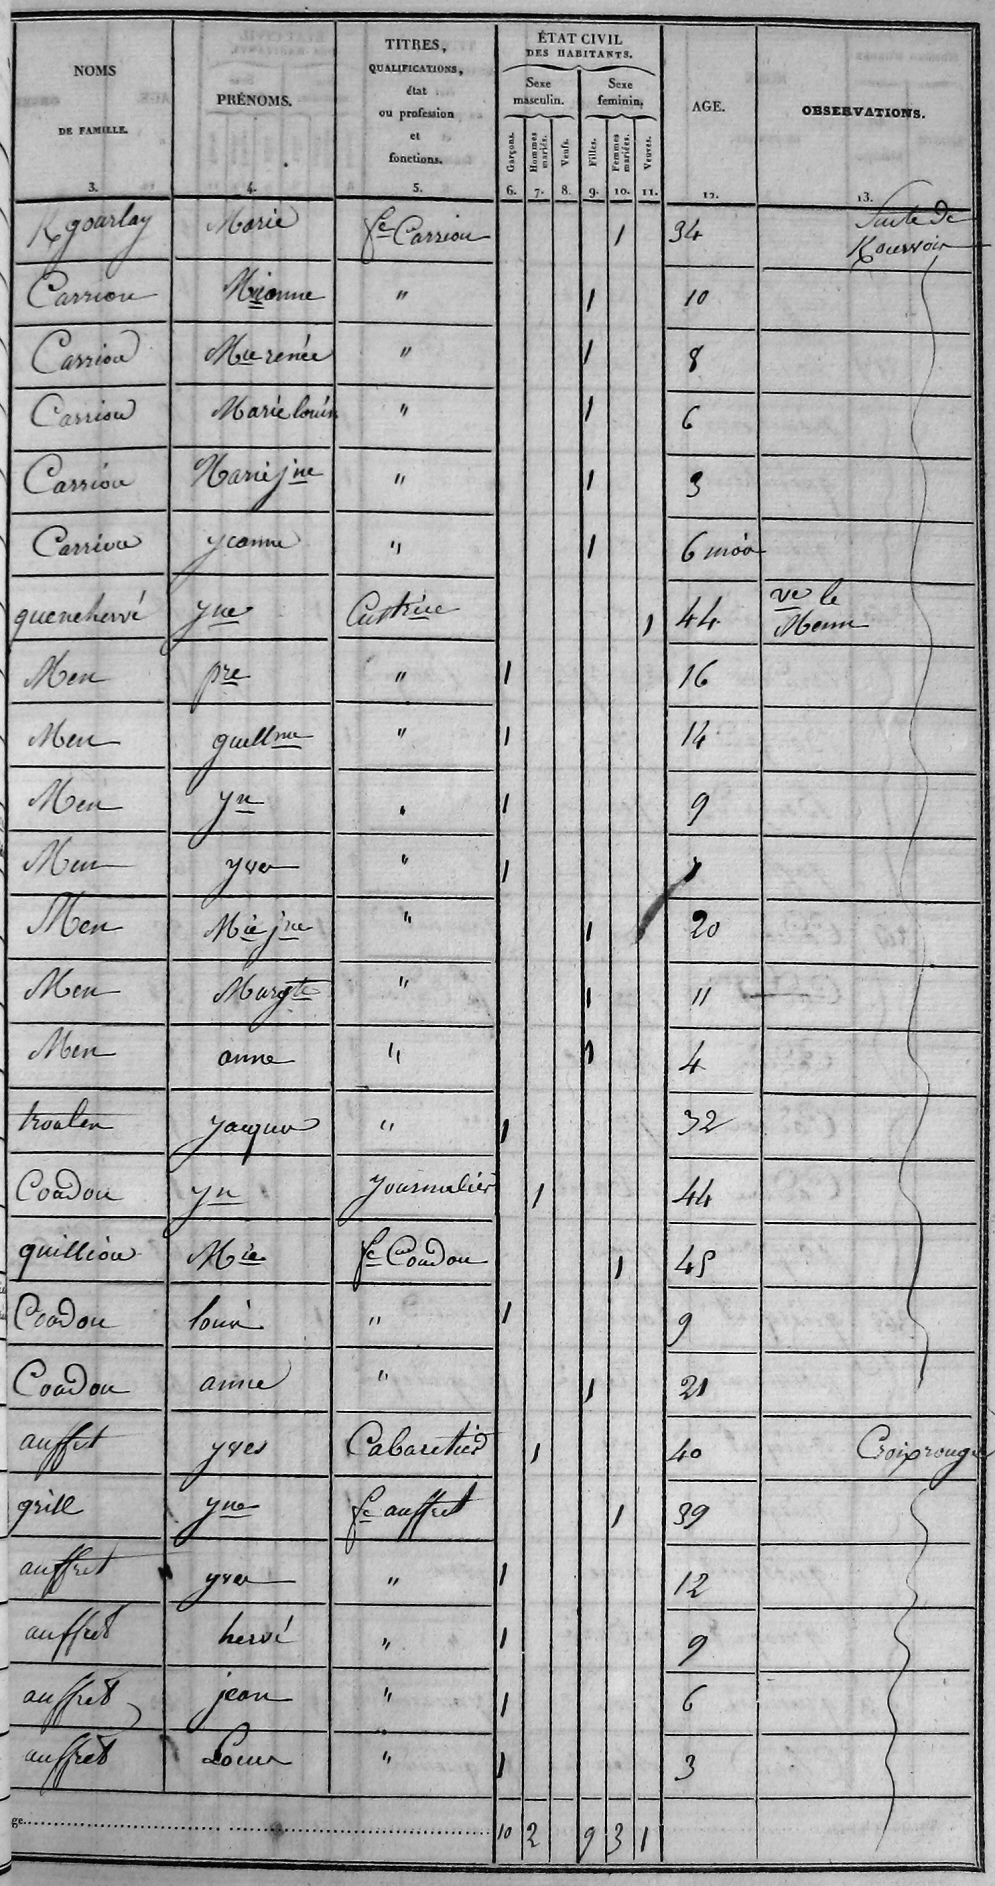 NOMS DE FAMILLE. PRÉNOMS. TITRES, QUALIFICATIONS, état ou profession et fonctions. ÉTAT CIVIL DES HABITANTS. AGE. OBSERVATIONS.
Sexe masculin. Sexe feminin.
Garçons. Hommes mariés. Veufs. Filles. Femmes mariées. Veuves.
3. 4. 5. 6. 7. 8. 9. 10. 11. 12. 13.
Kgourlay Marie fe Carriou 1 34 Suite de
Carriou " 1 10
Carriou Mie renée " 1 8
Carriou Marie louise " 1 6
Carriou Marie jne " 1 3
Carriou yeanne " 1 6 mois
quenehervé yne Cultrice 1 44 ve le Menn
Men pre " 1 16
Men guillme " 1 14
Men yn " 1 9
Men yves " 1
Men Mie jne " 1 20
Men Margte " 1 11
Men anne " 1 4
yacques " 1 32
Coadou yn yournalier 1 44
quilliou Mie fe Coadou 1 45
Coadou louis " 1 9
Coadou anne " 1 21
auffret yves Cabaretier 1 40 Croix rouge
grill yne fe auffret 1 39
auffret yves " 1 12
auffret hervé " 1 9
auffret jean " 1 6
auffret " 1 3
ge 10 2 9 3 1